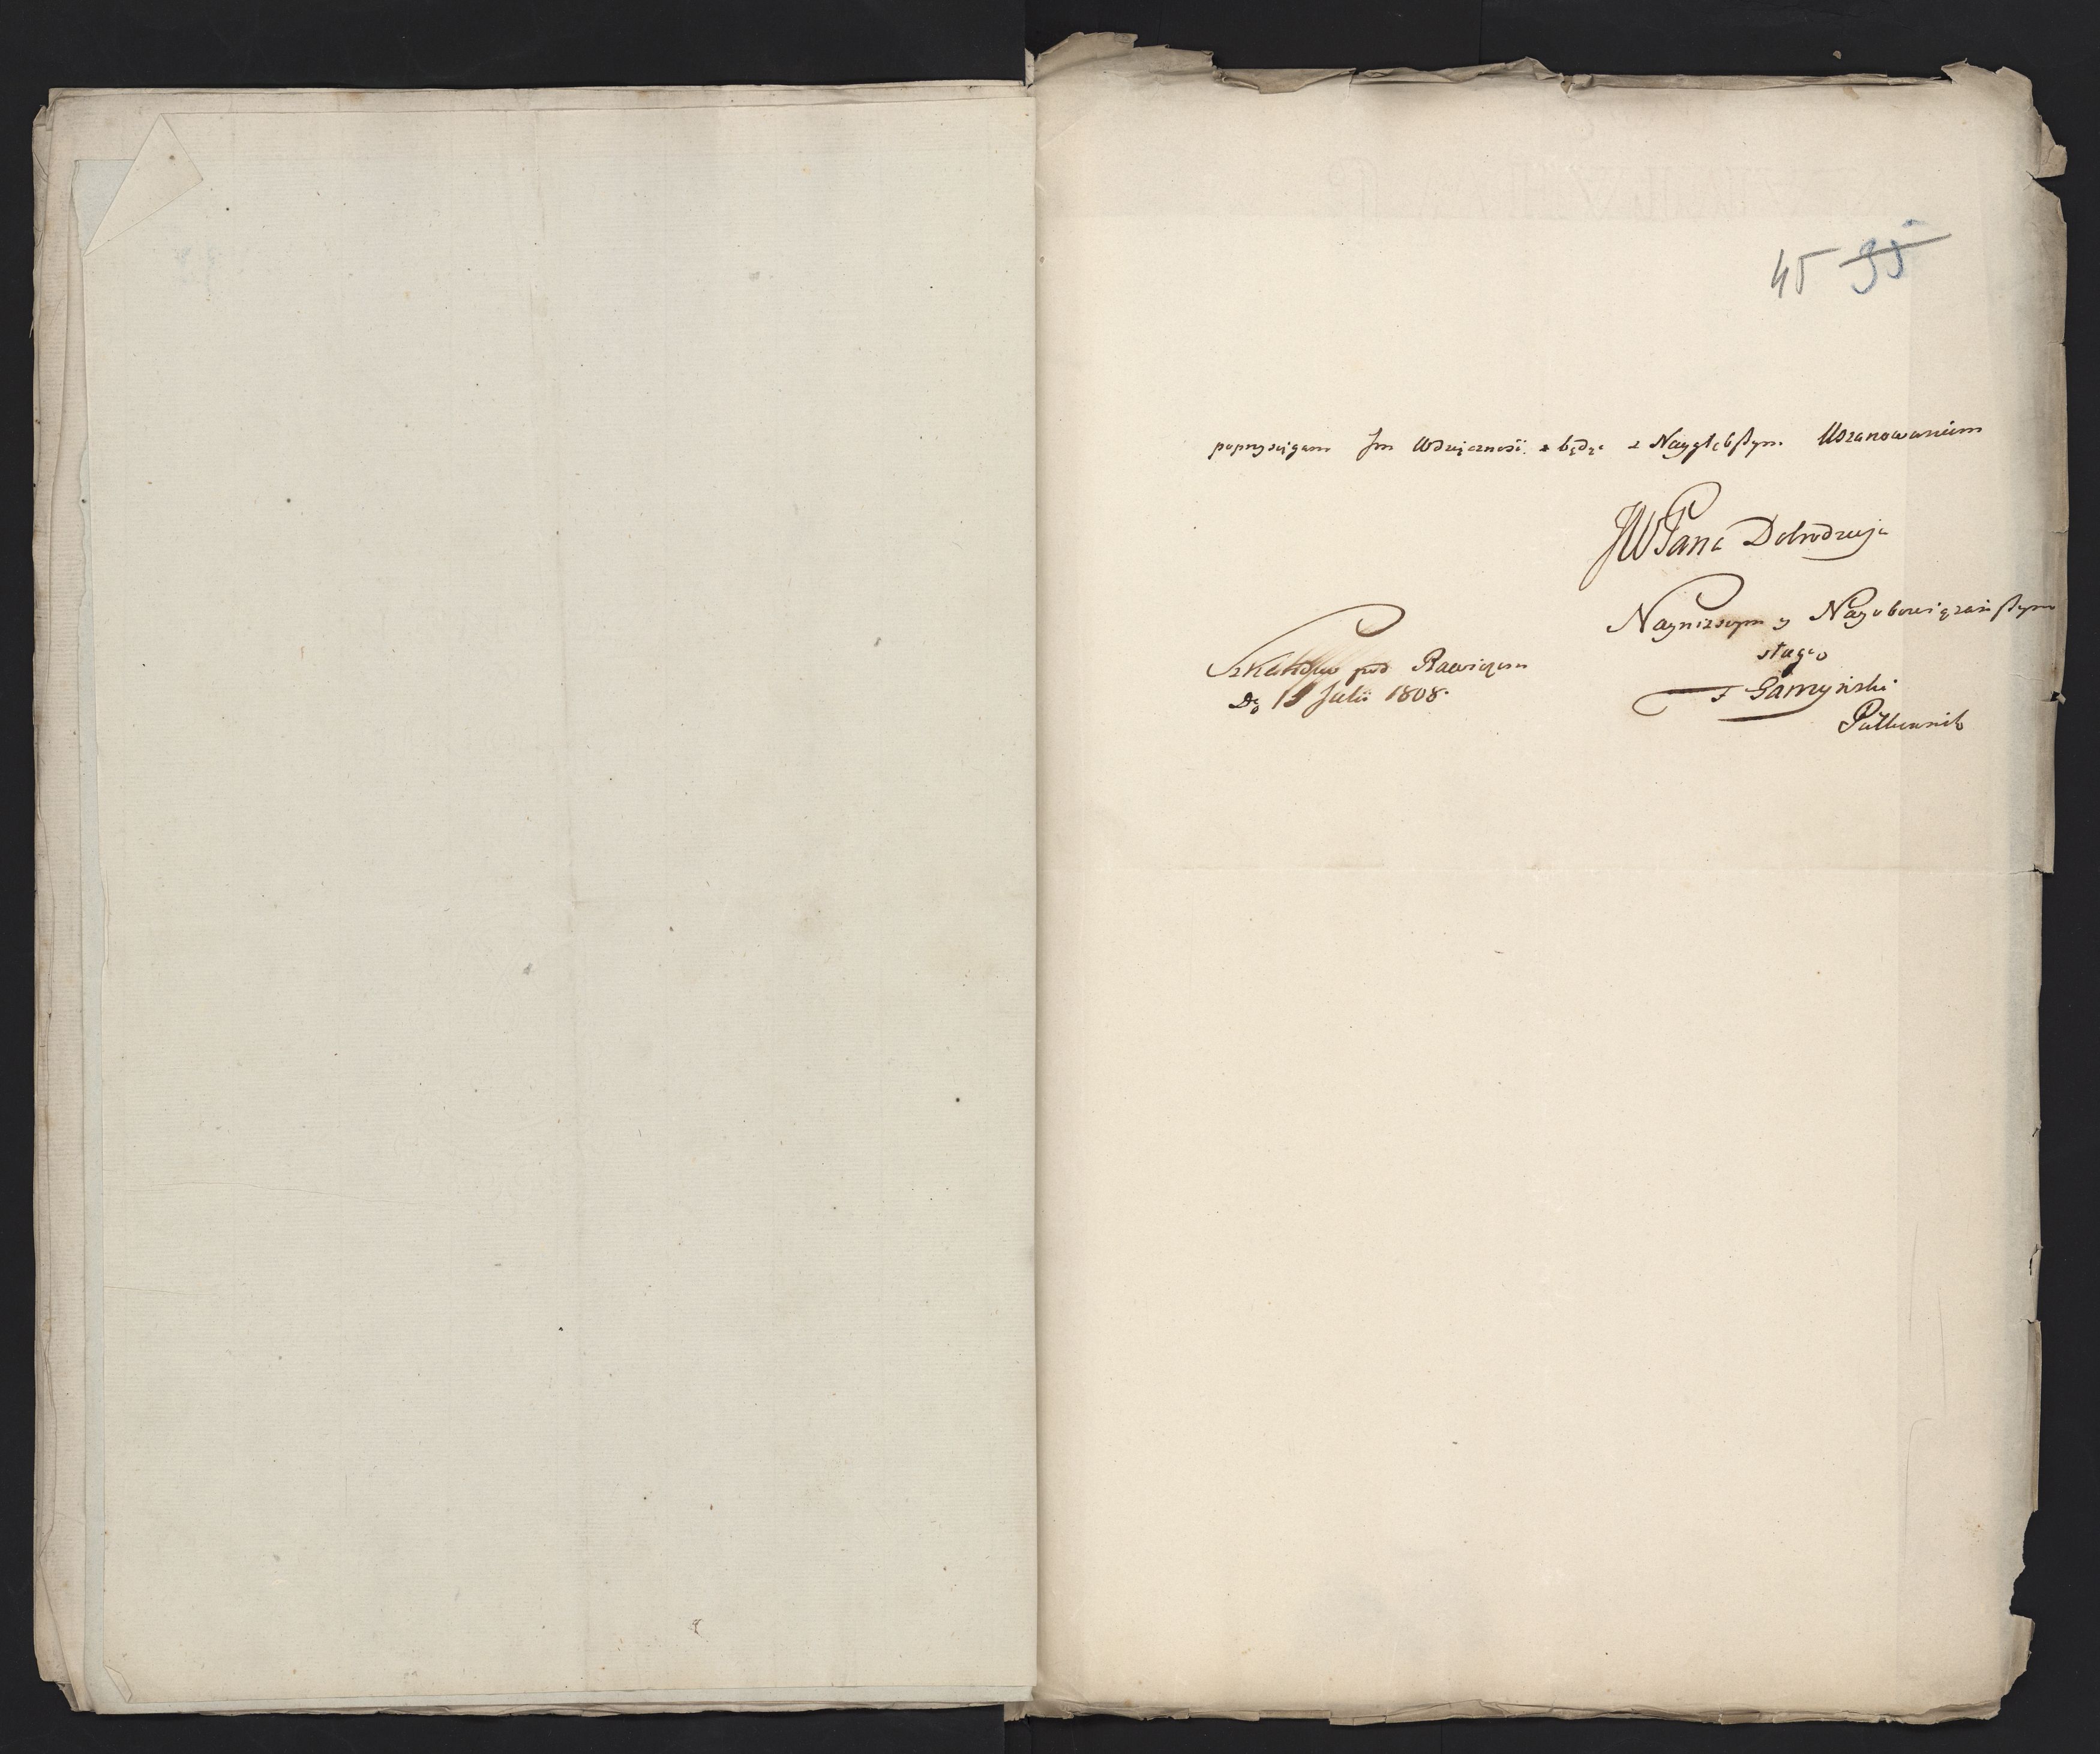 45 35
poprzysięgam Im Wdzięczność. a będąc z Nayglębszym Uszanowaniem
JWPana Dobrodzieja
Nayniższym y Nayobowiązańszym
sługą
F Garczyński
Pułkownik
pod Rawiczem
D 15 Julii 1808.